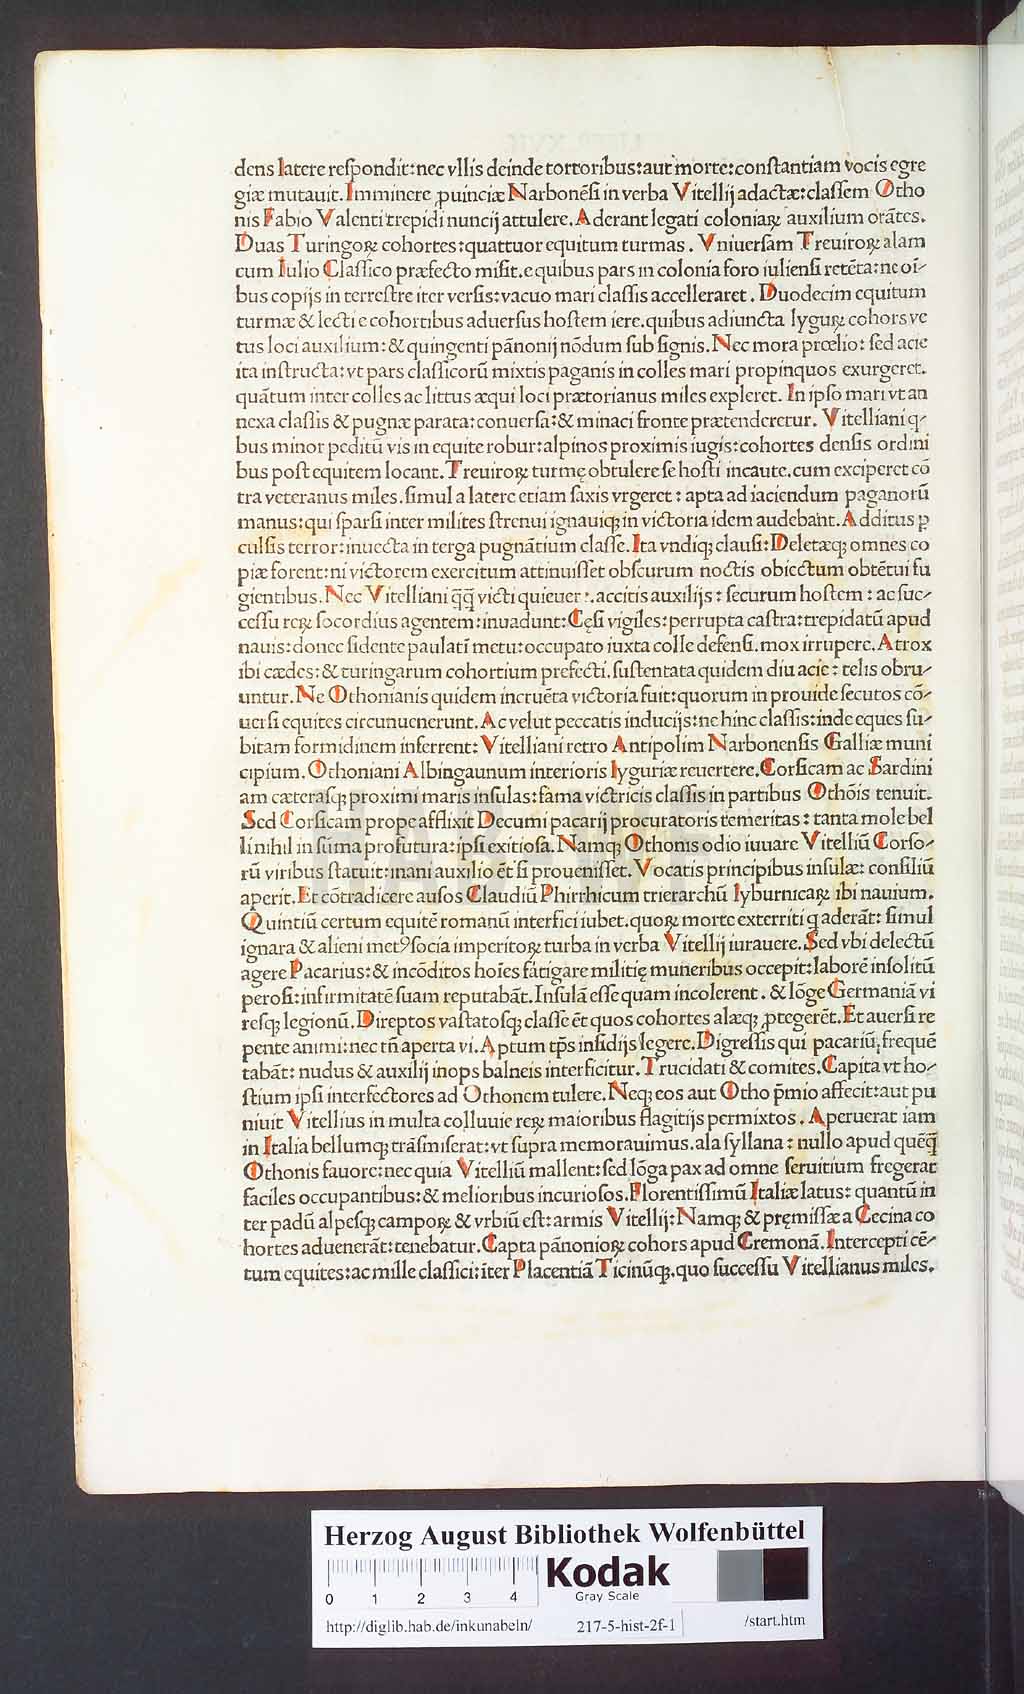 dens latere respondit:nec vllis deinde tortoribus:aut morte:constantiam vocis egre
giæ mutauit. Imminere ꝓuinciæ Narbonēsi in verba Vitellij adactæ:classem Otho
nis Fabio Valenti trepidi nuncij attulere. Aderant legati coloniaꝝ auxilium orātes.
Duas Turingoꝝ cohortes:quattuor equitum turmas. Vniuersam Treuiroꝝ alam
cum Iulio Classico præfecto misit. e quibus pars in colonia foro iuliensi retēta:ne oī-
bus copijs in terrestre iter versis:vacuo mari classis accelleraret. Duodecim equitum
turmæ & lecti e cohortibus aduersus hostem iere. quibus adiuncta lyguꝝ cohors ve
tus loci auxilium:& quingenti pānonij nōdum sub signis. Nec mora prœlio: sed acie
ita instructa:vt pars classicorū mixtis paganis in colles mari propinquos exurgeret.
quātum inter colles ac littus æqui loci prætorianus miles expleret. In ipso mari vt an
nexa classis & pugnæ parata:conuersa:& minaci fronte prætenderetur. Vitelliani q-
bus minor peditū vis in equite robur:alpinos proximis iugis:cohortes densis ordini
bus post equitem locant. Treuiroꝝ turmę obtulere se hosti incaute. cum exciperet cō
tra veteranus miles. simul a latere etiam saxis vrgeret: apta ad iaciendum paganorū
manus:qui sparsi inter milites strenui ignauiqꝫ in victoria idem audebant. Additus ꝑ
culsis terror:inuecta in terga pugnātium classe. Ita vndiqꝫ clausi:Deletæqꝫ omnes co
piæ forent:ni victorem exercitum attinuisset obscurum noctis obiectum obtētui fu
gientibus. Nec Vitelliani q̄q̄ victi quieuer:. accitis auxilijs: securum hostem: ac suc-
cessu reꝝ socordius agentem:inuadunt:Cęsi vigiles:perrupta castra:trepidatū apud
nauis:donec sidente paulatī metu:occupato iuxta colle defensi. mox irrupere. Atrox
ibi cædes:& turingarum cohortium prefecti. sustentata quidem diu acie: telis obru-
untur. Ne Othonianis quidem incruēta victoria fuit:quorum in prouide secutos cō-
uersi equites circunuenerunt. Ac velut peccatis inducijs:ne hinc classis:inde eques su-
bitam formidinem inferrent:Vitelliani retro Antipolim Narbonensis Galliæ muni
cipium. Othoniani Albingaunum interioris lyguriæ reuertere. Corsicam ac Sardini
am cæterasqꝫ proximi maris insulas:fama victricis classis in partibus Othōis tenuit.
Sed Corsicam prope afflixit Decumi pacarij procuratoris temeritas: tanta mole bel
li nihil in sūma profutura:ipsi exitiosa. Namqꝫ Othonis odio iuuare Vitelliū Corso-
rū viribus statuit:inani auxilio ēt si prouenisset. Vocatis principibus insulæ: consiliū
aperit. Et cōtradicere ausos Claudiū Phirrhicum trierarchū lyburnicaꝝ ibi nauium.
Quintiū certum equitē romanū interfici iubet. quoꝝ morte exterriti q aderāt: simul
ignara & alieni metꝰ socia imperitoꝝ turba in verba Vitellij iurauere. Sed vbi delectū
agere Pacarius:& incōditos hoīes fatigare militię muneribus occepit:laborē insolitū
perosi:infirmitatē suam reputabāt. Insulā esse quam incolerent. & lōge Germaniā vi
resqꝫ legionū. Direptos vastatosqꝫ classe ēt quos cohortes alæqꝫ ꝓtegerēt. Et auersi re
pente animi:nec tn̄ aperta vi. Aptum tp̄s insidijs legere. Digressis qui pacariū frequē
tabāt: nudus & auxilij inops balneis interficitur. Trucidati & comites. Capita vt ho-
stium ipsi interfectores ad Othonem tulere. Neqꝫ eos aut Otho p̄mio affecit:aut pu
niuit Vitellius in multa colluuie reꝝ maioribus flagitijs permixtos. Aperuerat iam
in Italia bellumqꝫ trāsmiserat:vt supra memorauimus. ala syllana: nullo apud quēq̄
Othonis fauore:nec quia Vitelliū mallent:sed lōga pax ad omne seruitium fregerat
faciles occupantibus:& melioribus incuriosos. Florentissimū Italiæ latus: quantū in
ter padū alpesqꝫ campoꝝ & vrbiū est:armis Vitellij:Namqꝫ & pręmissæ a Cecina co
hortes aduenerāt:tenebatur. Capta pānonioꝝ cohors apud Cremonā. Intercepti cē-
tum equites:ac mille classici:īter Placentiā Ticinūqꝫ. quo successu Vitellianus miles.
Herzog August Bibliothek Wolfenbüttel
0 1 2 3 4
Kodak
Gray Scale
http://diglib.hab.de/inkunabeln/ 217-5-hist-2f-1 /start.htm